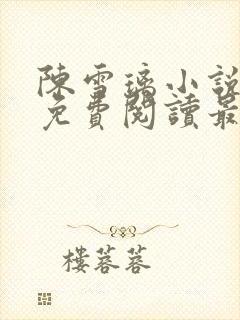 陳雪璃小說
免費閱讀最
樓蓉蓉